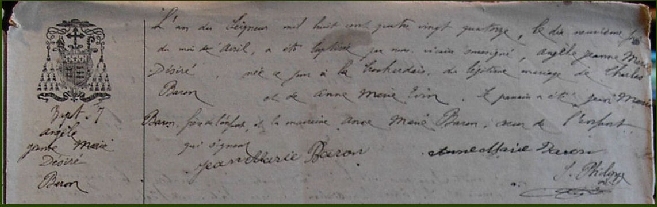 L'an du Seigneur mil huit cent quatre vingt quatorze, le dix neuvième jour
du mois de Avril, a été baptisé par nous, vicaire soussigné, Angèle Jeanne Marie
Désiré née ce jour à la du légitime mariage de Charles
Baron et de Anne Marie Evin. Le parrain a été
Baron, et la marraine Anne Marie Baron, soeur de l'enfant
qui signent
Jean Marie Baron Anne Marie Baron
J. Philippe
Bapt. 7
Angèle
Jeanne Marie
Désiré
Baron